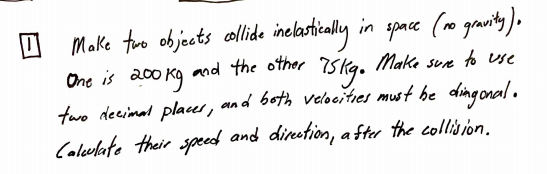 1 Make two objects collide inelastically in space (no gravity).
One is 200 kg and the other 75kg. Make sure to use
two decimal places, and both velocities must be diagonal.
Calculate their speed and direction, after the collision.